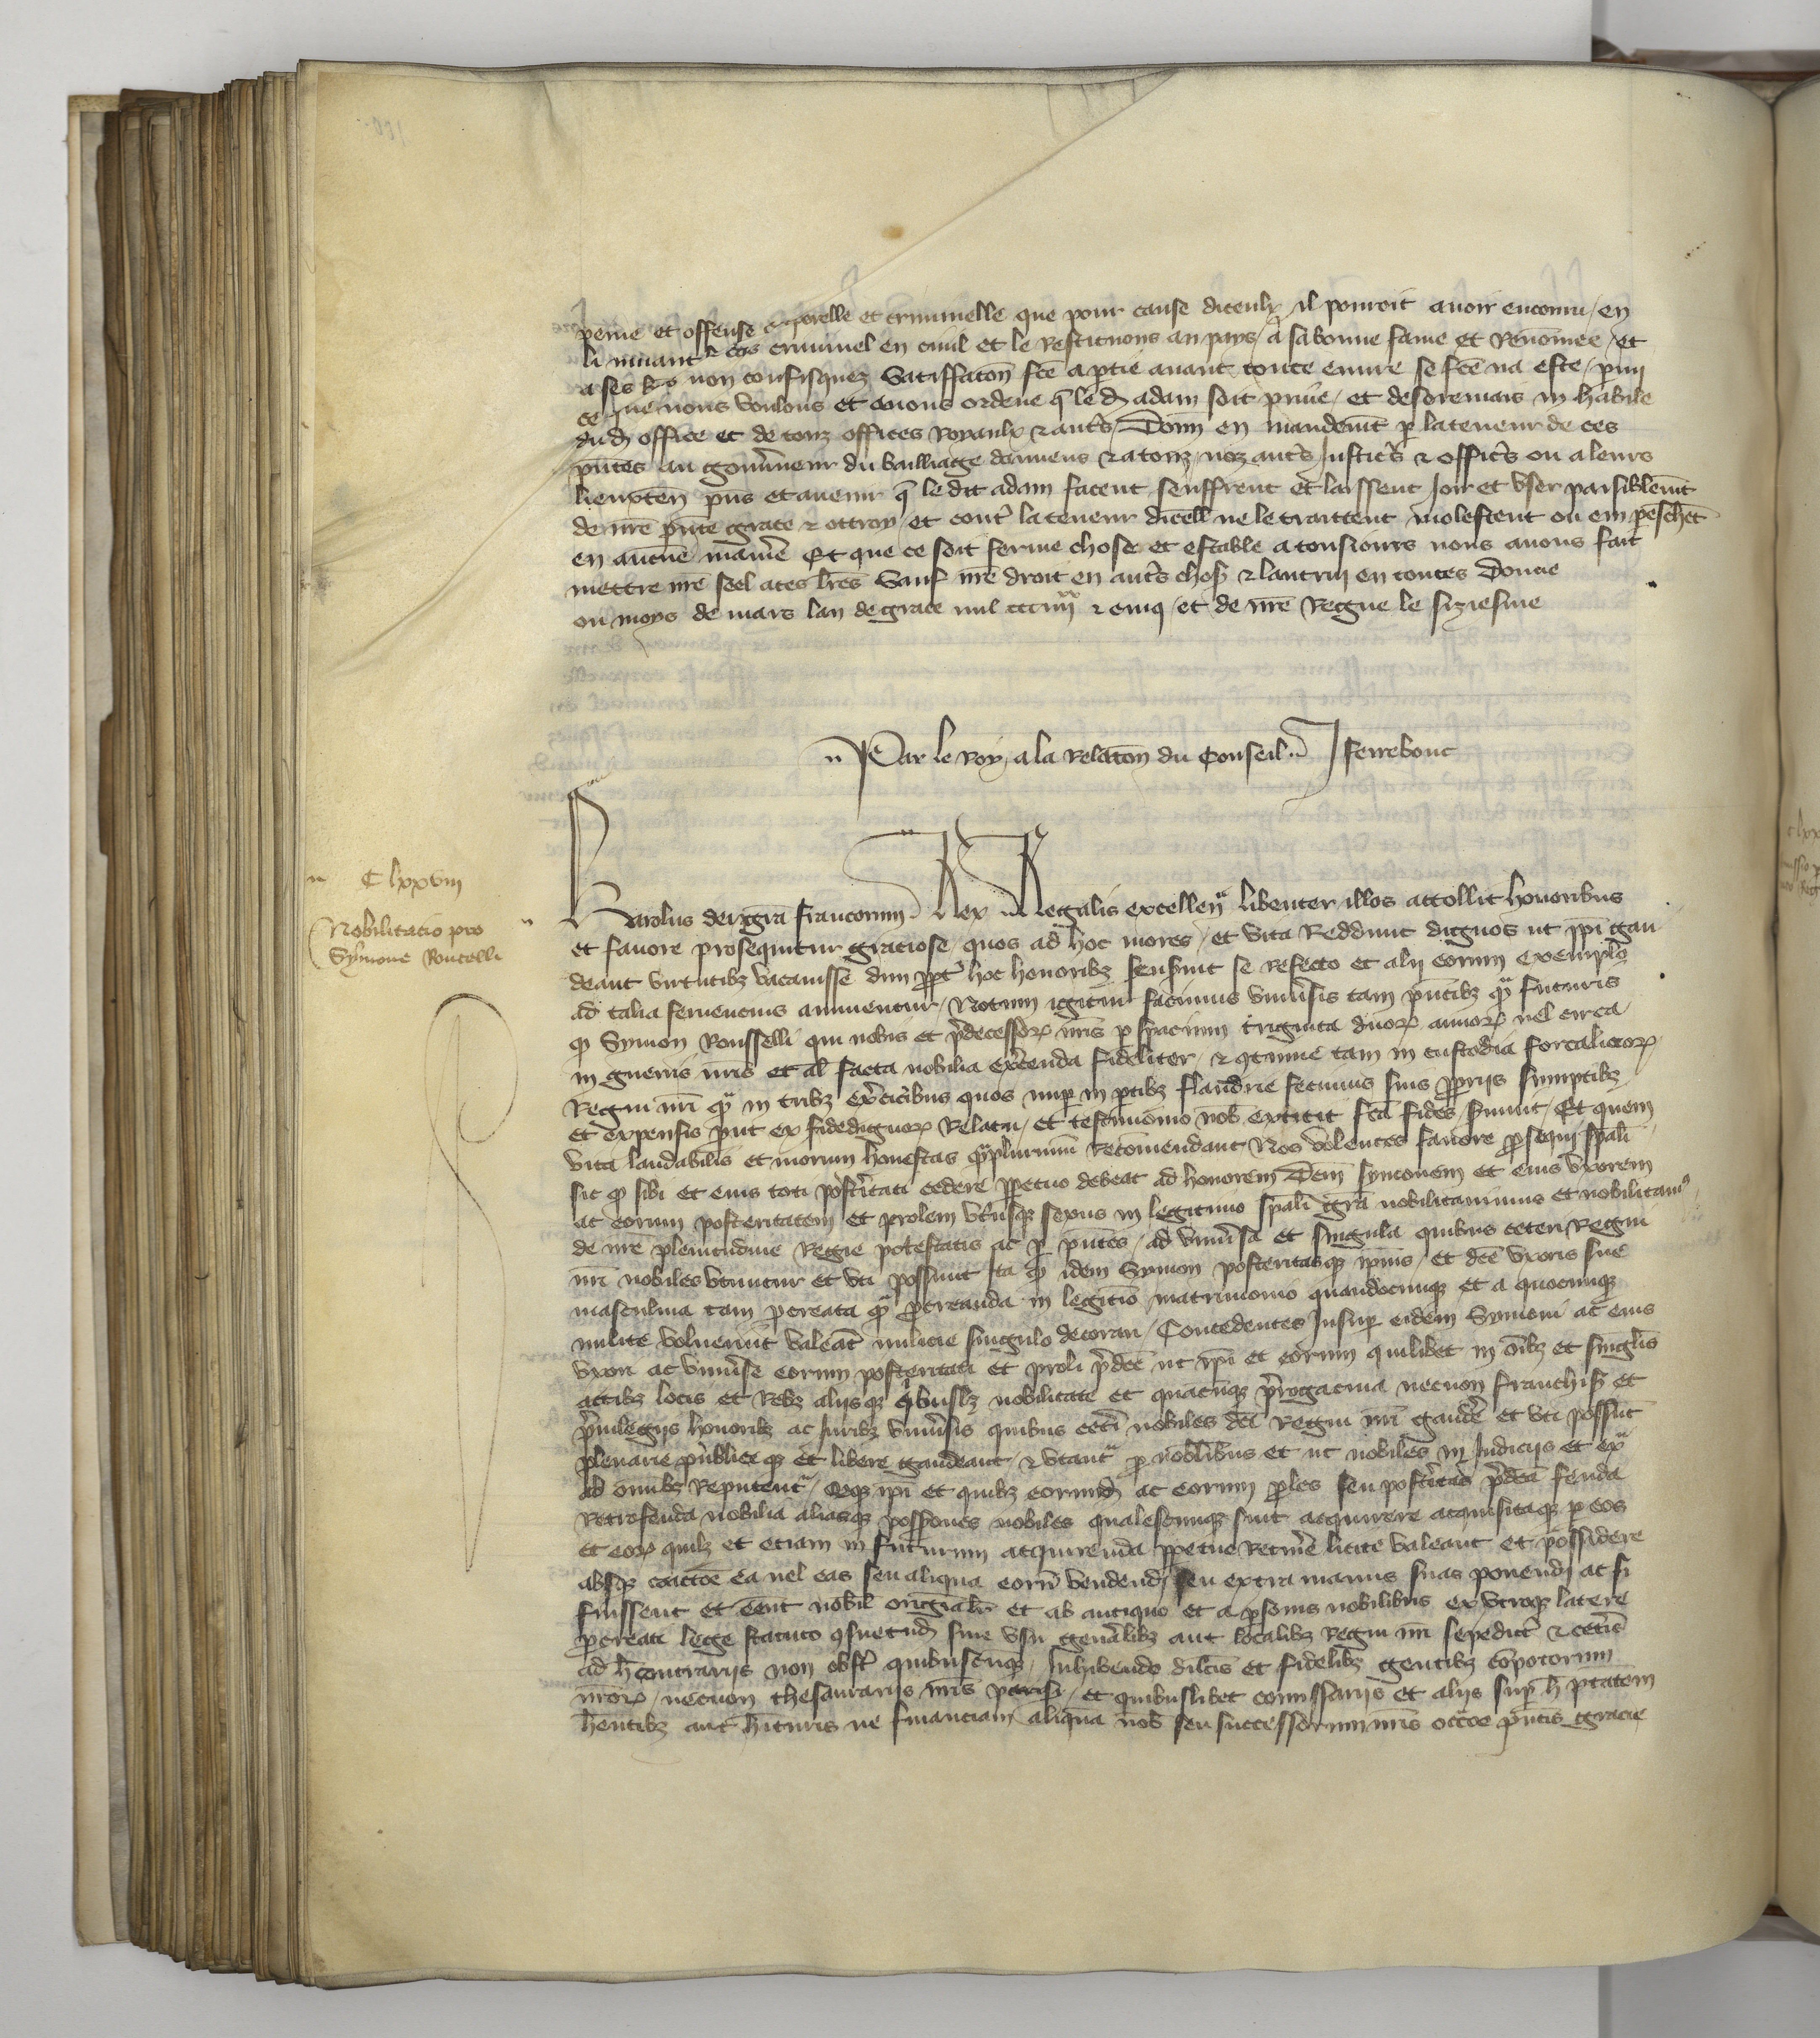 peine et offense corporelle et criminelle que pour cause diceulx il pourroit avoir encouru / en
li muant le cas criminel en civil et le restituons au pays / a sa bonne fame et Renōmee / et
a ses non confisquez Satiffacōn fc̄e a ptie avant toute euvre se fc̄e na este / pmi
ce que nous voulons et avons ordene q̄ le d adam soit prive / et desoremais in habile
dud office et de touz offices royaulx & aut̄s / Donn en mandem̄t p la teneur de ces
pn̄tes au gouv̄neur du bailliage damiens & a touz noz aut̄s Justic̄s & offic̄s ou a leurs
lieuxten̄ pn̄s et avenir q̄ le dit adam facent seuffrent et laissent Joir et user paisiblem̄t
de nr̄e pn̄te grace & ottroy / et cont̄ la teneur dicell ne le traittent molestent ou em peschēt
en aucune maniē Et que ce soit ferme chose et estable a tousiours nous avons fait
mettre nr̄e seel a ces lr̄es Sauf nr̄e droit en aut̄s chos̄ & lautruy en toutes Donne
ou moys de mars lan de grace mil ccc iiij xx & cinq / et de nr̄e Regne le siziesme
Par le Roy a la Relacōn du Conseil J ferrebouc
C lxxviij
Nobilitacio pro
Symone Roucelli
Karolus dei gr̄a francorum Rex Regalis excellen̄ libenter illos attollit honoribus
et favore prosequitur graciose / quos ad hoc mores / et vita Reddunt dignos ut ip̄i gau
deant virtutibz vacavisse dum ppt̄ hoc honoribz senserint se Refecto et alij eorum exemplo
ad talia ferventius animentur / Notum igitur facimus univ̄sis tam pn̄tibz q̄ futuris
q Symon Rousselli qui nobis et p̄decessor nr̄is p spacium triginta duor annor vel circa
in guerris nr̄is et al facta nobilia ex̄cenda fideliter / & gtinue tam in custodia fortalicior
Regni nr̄i q̄ in tribz ex̄citibus quos nup in ptibz flandrie fecimus suis pprijs sumptibz
et expensis put ex fidedignor Relatu / et testimonio nob̄ extitit fc̄a fides servivit / Et quem
vita laudabilis et morum honestas q̄plurimū Recōmendant Nos volentes favore psequi sp̄ali
sic q sibi et eius toti post̄itati cedere ppetuo debeat ad honorem Dc̄m symonem et eius uxorem
ac eorum posteritatem et prolem ut̄usq sexus in legitimo sp̄ali gr̄a nobilitavimus et nobilitam
de nr̄e plenitudine Regie potestatis ac p pn̄tes / ad univ̄sa et singula quibus ceteri Regni
nr̄i nobiles utuntur et uti possunt Ita q idem Symon posteritasq ip̄ius / et dc̄e uxoris sue
masculina tam pcreata q̄ pcreanda in legitīo matrimonio quandocunq et a quocunq
milite voluerint valeāt milicie singulo decorari / Concedentes Insup eidem Symoni ac eius
uxori ac univ̄se eorum posteritati et proli p̄dc̄e ut ip̄i et eorum quilibet in oīb et singlīs
actibz locis et Rebz alijsq qbuslz nobilitate et quacūq p̄rogativa necnon franchis̄ et
p̄vilegijs honoribz ac Juribz univ̄sis quibus cet̄i nobiles dc̄i Regni nr̄i gaudēt et uti possūt
plenarie publice q et libere gaudeant & utant̄ p nob̄libus et ut nobiles in Judicijs et ex̄
ab omnibz Reputent̄ / ip̄i et quibz eorumd ac eorum ples seu post̄itas p̄dc̄a feuda
Retrofeuda nobilia aliasq possōnes nobiles qualescunq sint acquirere acquisitaq p eos
et eor quilz et etiam in futurum acquirenda ppetue Retinēe licite valeant et possidere
absq coactōe ea vel eas seu aliqua eorū vendend / seu extra manus suas ponendj ac si
fuissent et eēnt nobil originalr̄ et ab antiquo et a psonis nobilibus ex utroq latere
pcreati lege statuto gsuetud sive usu gen̄alibz aut localibz Regni nr̄i sepedict̄ & cet̄is
ad h̄ contrarijs non obst̄ quibuscūq / Inhibendo dilc̄is et fidelibz gentibz cōpotorum
nr̄or / necnon thesaurarijs nr̄is parisi / et quibuslibet comissarijs et alijs sup h̄ ptatem
hentibz aut h̄ituris ne financiam aliquā nob̄ seu successorum nr̄is occōe pn̄tis gracie